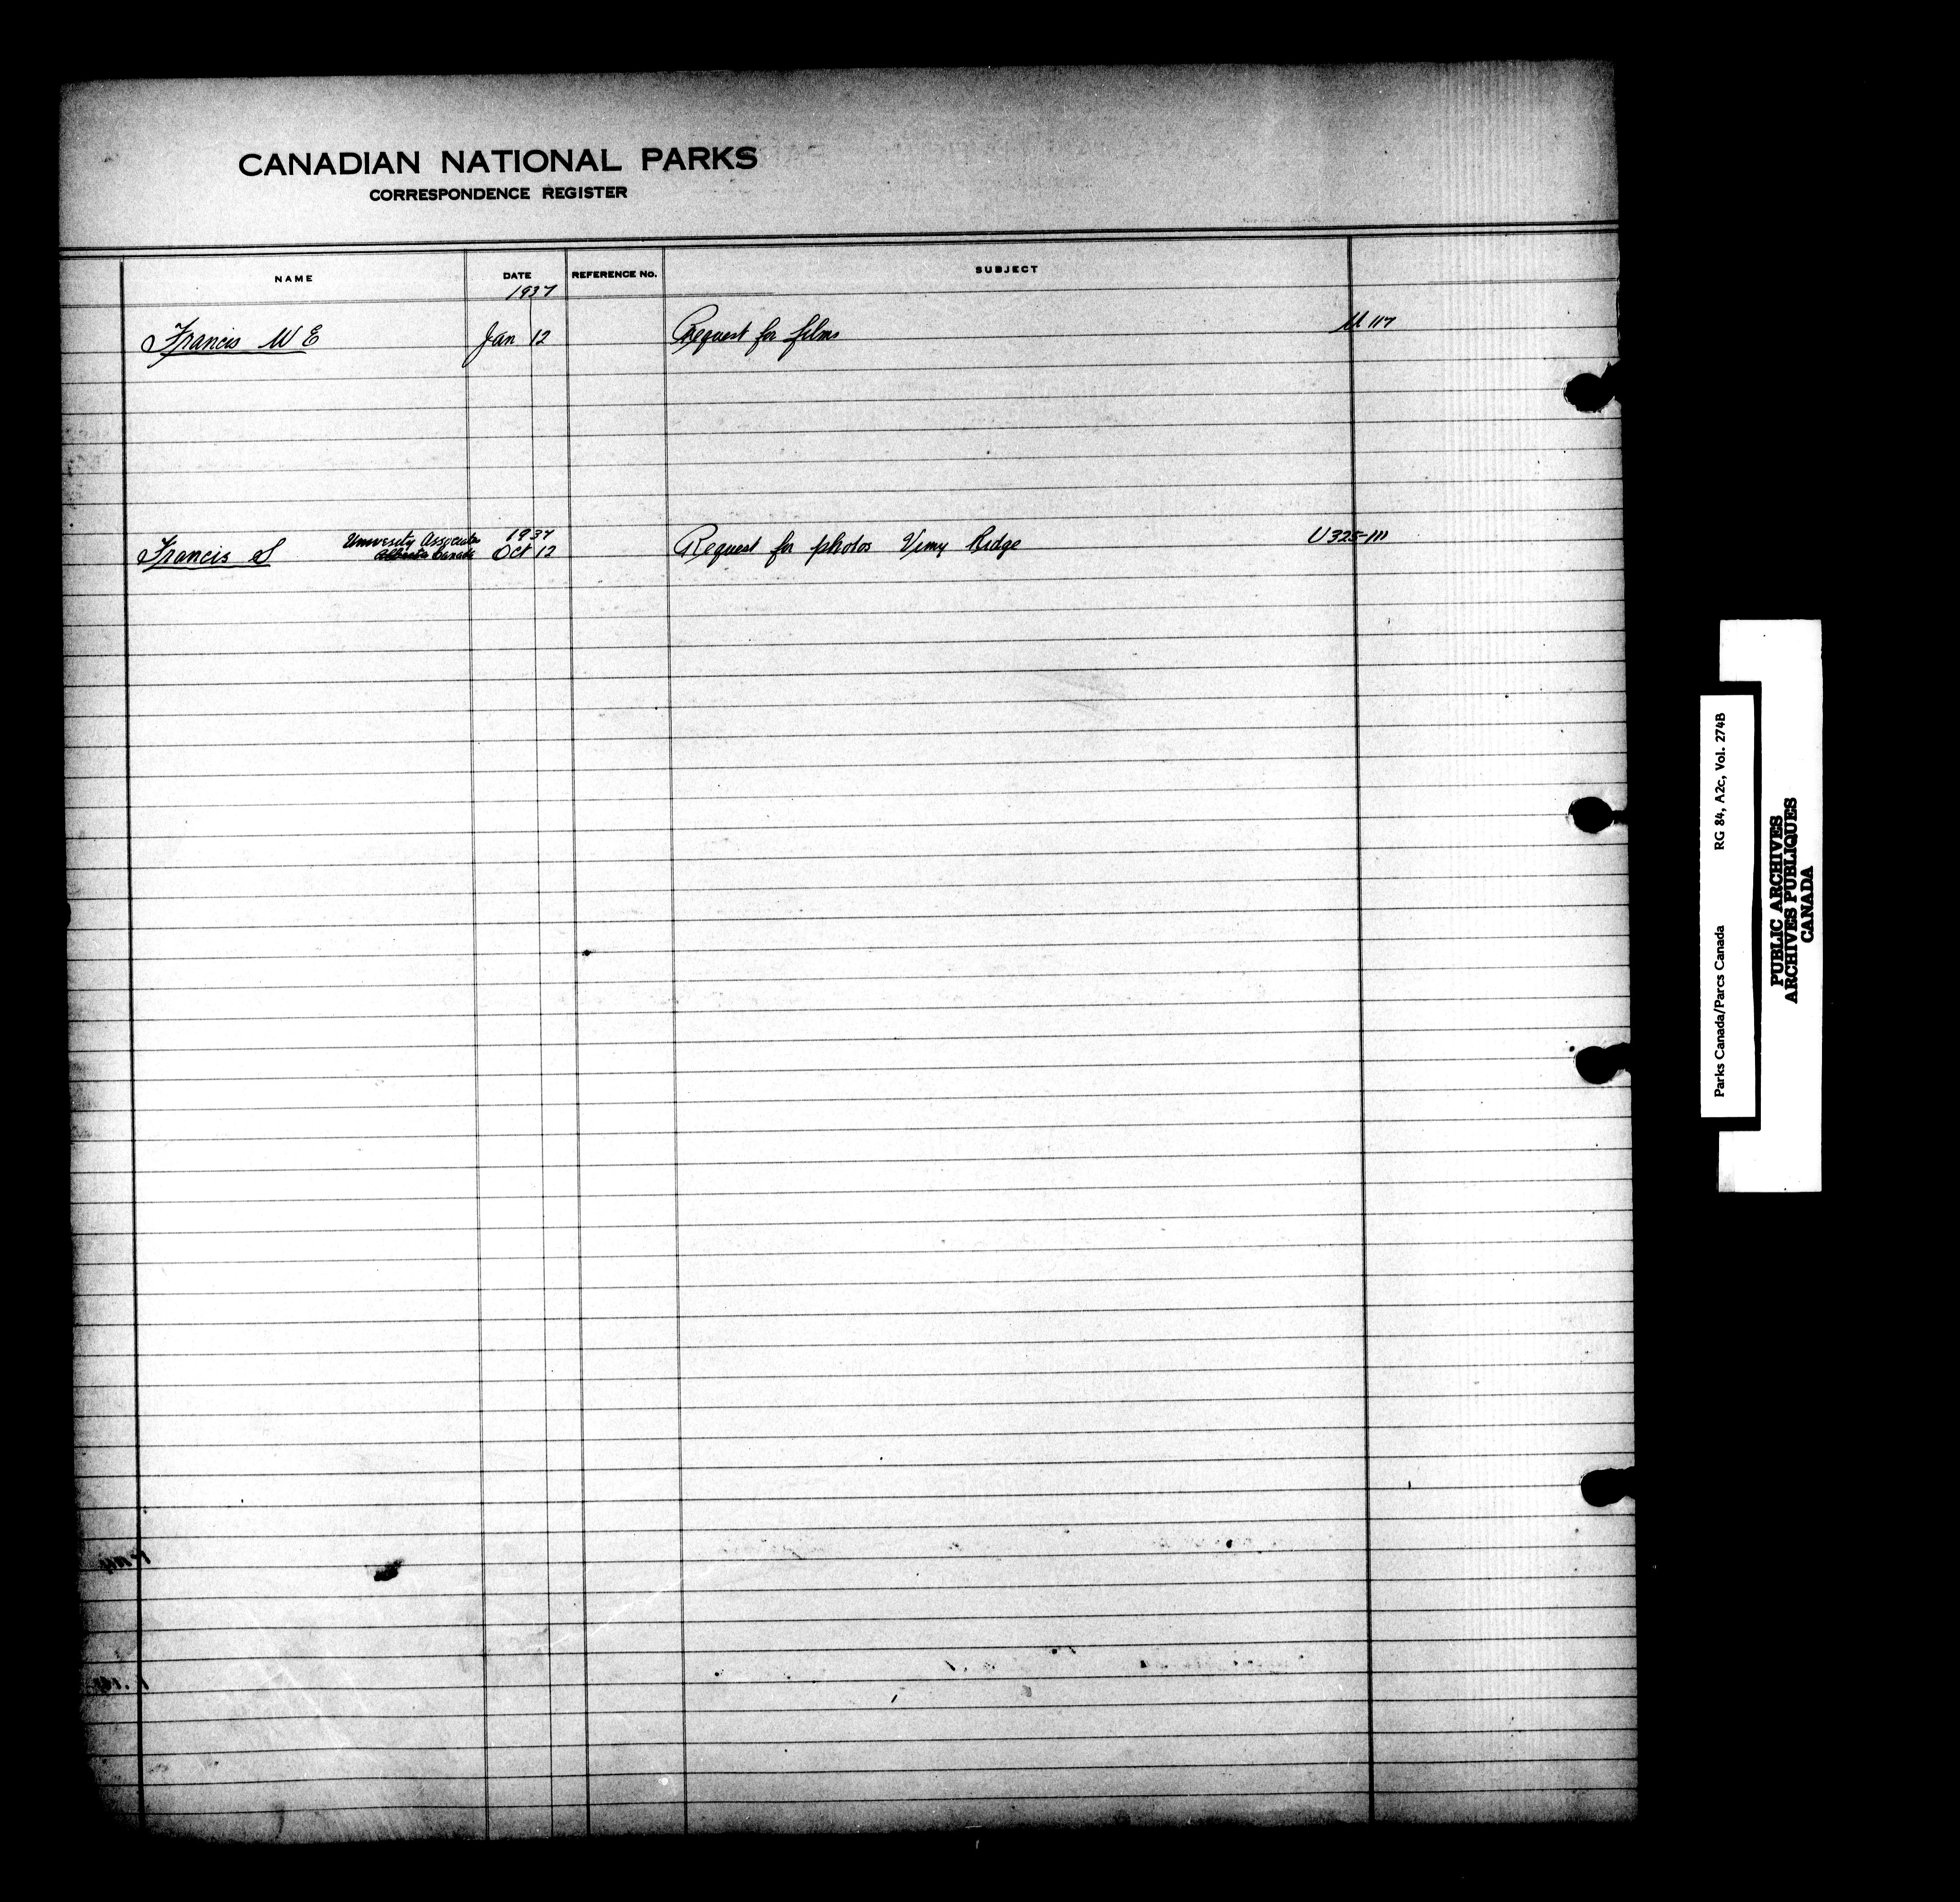 CANADIAN NATIONAL PARKS
CORRESPONDENCE REGISTER
NAME DATE REFERENCE No. SUBJECT
1937
Francis W E Jan 12 Request for films U 117
University Associate 1937
Francis S Canada Oct 12 Request for photos Vimy Ridge U325-111
Parks Canada/Parcs Canada RG 84, A2c, Vol. 274B
PUBLIC ARCHIVES
ARCHIVES PUBLIQUES
CANADA